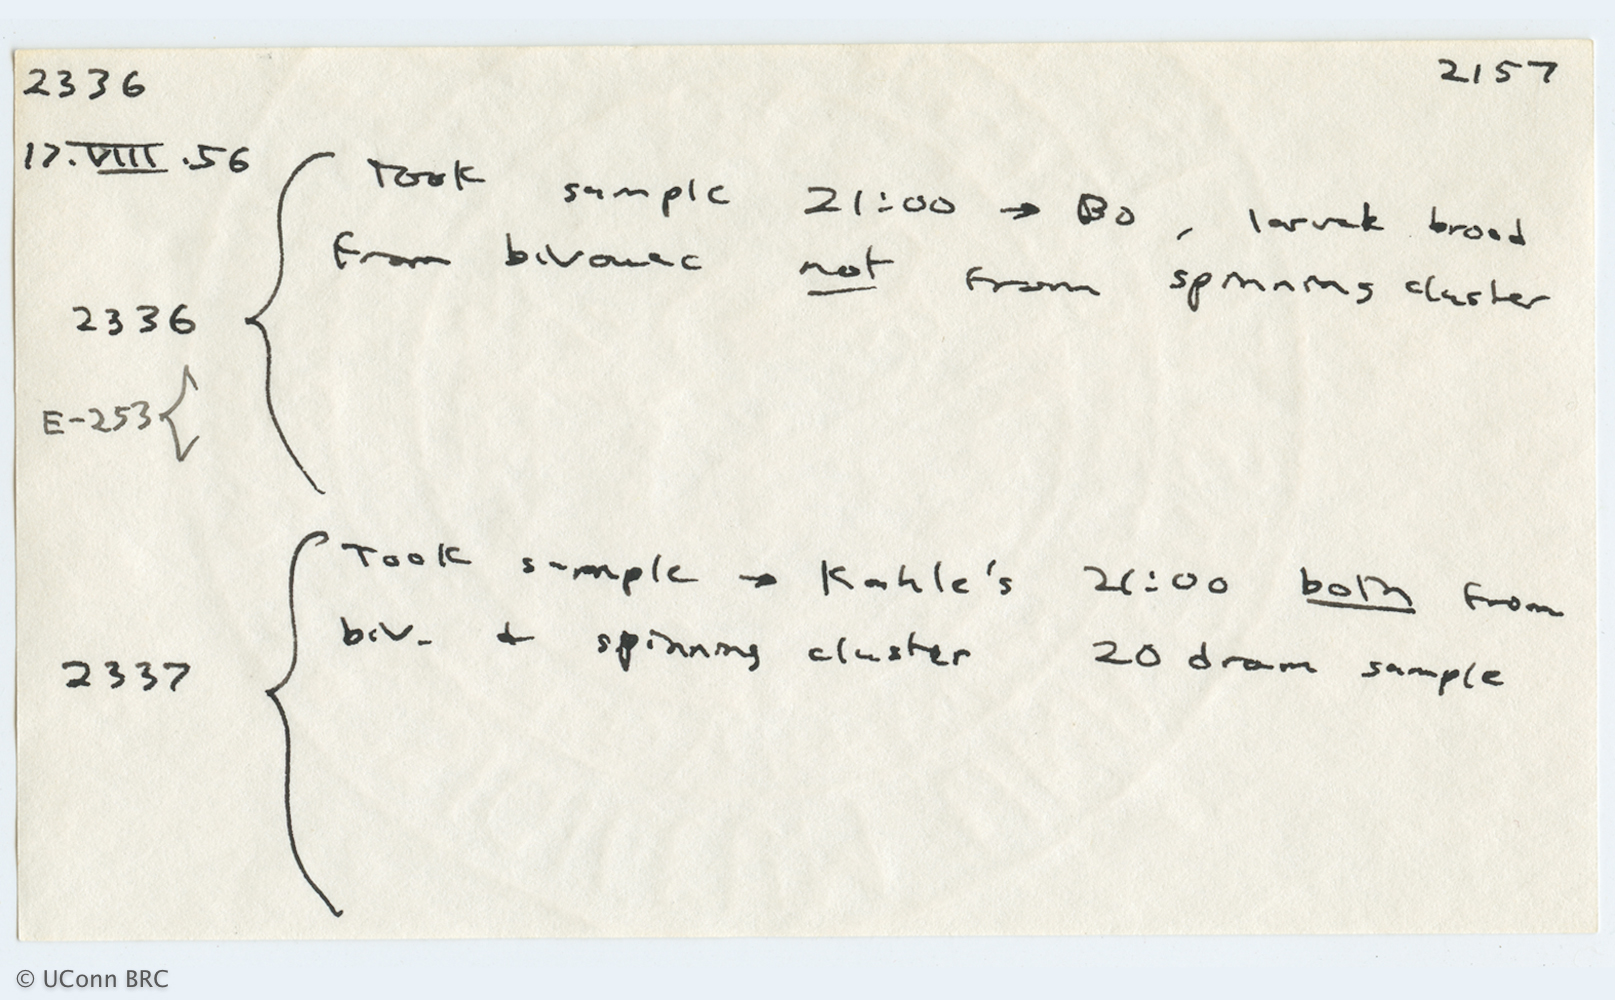 2336
2157
17.VIII.56
Took sample 21:00 → Bo, larvae brood
from bivouac not from spinning cluster
2336
E-253
Took sample → Kahle's 21:00 both from
biv. + spinning cluster 20 dram sample
2337
© UConn BRC